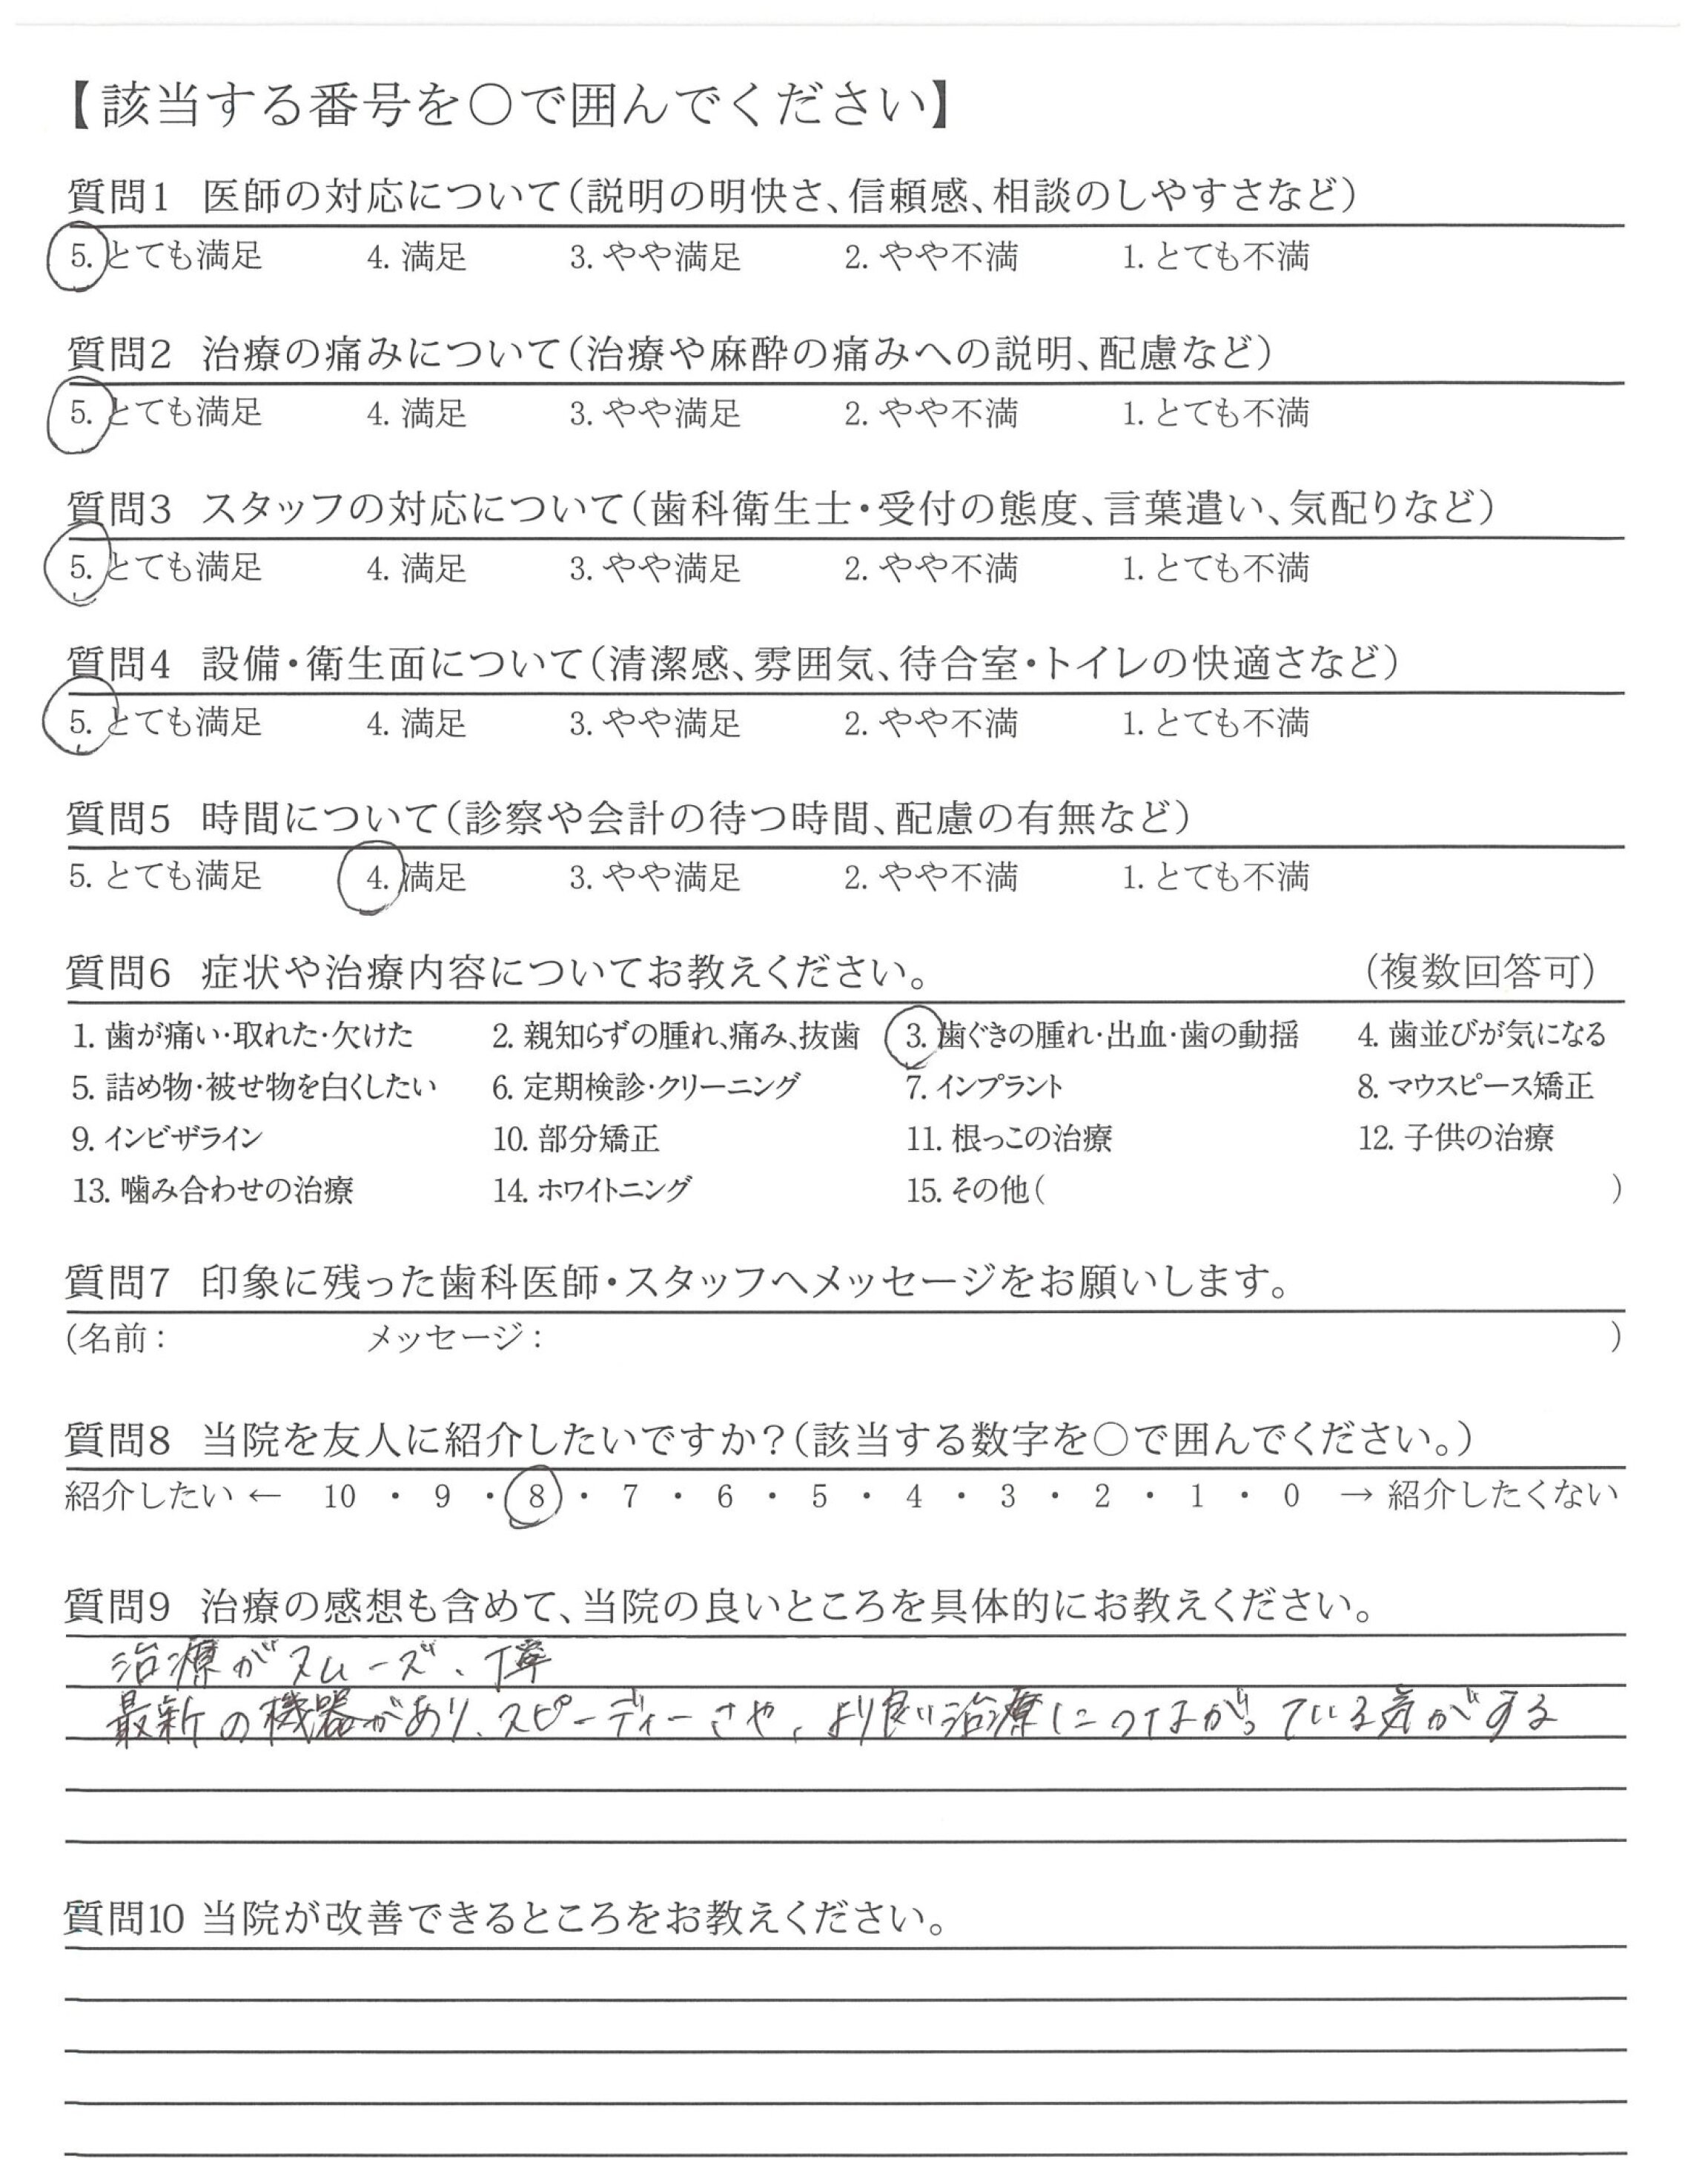 【該当する番号を〇で囲んでください】
質問1 医師の対応について(説明の明快さ、信頼感、相談のしやすさなど)
5. とても満足 4. 満足 3. やや満足 2. やや不満 1. とても不満
質問2 治療の痛みについて(治療や麻酔の痛みへの説明、配慮など)
5. とても満足 4. 満足 3. やや満足 2. やや不満 1. とても不満
質問3 スタッフの対応について(歯科衛生士・受付の態度、言葉遣い、気配りなど)
5. とても満足 4. 満足 3. やや満足 2. やや不満 1. とても不満
質問4 設備・衛生面について(清潔感、雰囲気、待合室・トイレの快適さなど)
5. とても満足 4. 満足 3. やや満足 2. やや不満 1. とても不満
質問5 時間について(診察や会計の待つ時間、配慮の有無など)
5. とても満足 4. 満足 3. やや満足 2. やや不満 1. とても不満
質問6 症状や治療内容についてお教えください。 (複数回答可)
1. 歯が痛い・取れた・欠けた 2. 親知らずの腫れ、痛み、抜歯 3. 歯ぐきの腫れ・出血・歯の動揺 4. 歯並びが気になる
5. 詰め物・被せ物を白くしたい 6. 定期検診・クリーニング 7. インプラント 8. マウスピース矯正
9. インビザライン 10. 部分矯正 11. 根っこの治療 12. 子供の治療
13. 噛み合わせの治療 14. ホワイトニング 15. その他( )
質問7 印象に残った歯科医師・スタッフへメッセージをお願いします。
(名前: メッセージ: )
質問8 当院を友人に紹介したいですか?(該当する数字を〇で囲んでください。)
紹介したい ← 10 ・ 9 ・ 8 ・ 7 ・ 6 ・ 5 ・ 4 ・ 3 ・ 2 ・ 1 ・ 0 → 紹介したくない
質問9 治療の感想も含めて、当院の良いところを具体的にお教えください。
治療がスムーズ、丁寧
最新の機器があり、スピーディーさや、より良い治療につながっている気がする
質問10 当院が改善できるところをお教えください。